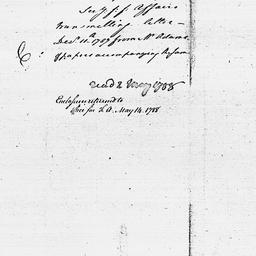 Affairs
transmitting letter
Decr. 11th. 1787 from Mr. Adams
& papers accompanying
read 2 May 1788
Enclosures returned to
Secy for F. A. May 14. 1788